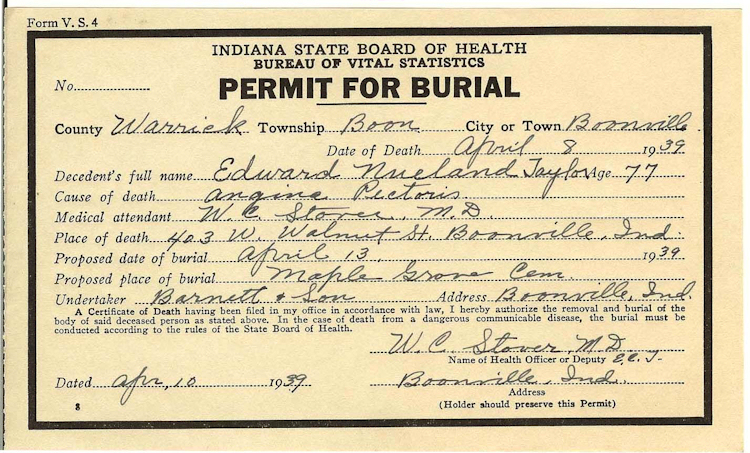 Form V. S. 4
INDIANA STATE BOARD OF HEALTH
BUREAU OF VITAL STATISTICS
No.
PERMIT FOR BURIAL
County Warrick Township Boon City or Town Boonville
Date of Death April 8 1939
Decedent's full name Edward Nueland Taylor Age 77
Cause of death angina Pectoris
Medical attendant W. C. Stover, M.D.
Place of death 403 W. Walnut St. Boonville, Ind.
Proposed date of burial April 13, 1939
Proposed place of burial Maple Grove Cem.
Undertaker Barnett & Son Address Boonville, Ind.
A Certificate of Death having been filed in my office in accordance with law, I hereby authorize the removal and burial of the
body of said deceased person as stated above. In the case of death from a dangerous communicable disease, the burial must be
conducted according to the rules of the State Board of Health.
W. C. Stover, M.D.
Name of Health Officer or Deputy
Dated Apr, 10 1939 Boonville, Ind.
Address
8 (Holder should preserve this Permit)